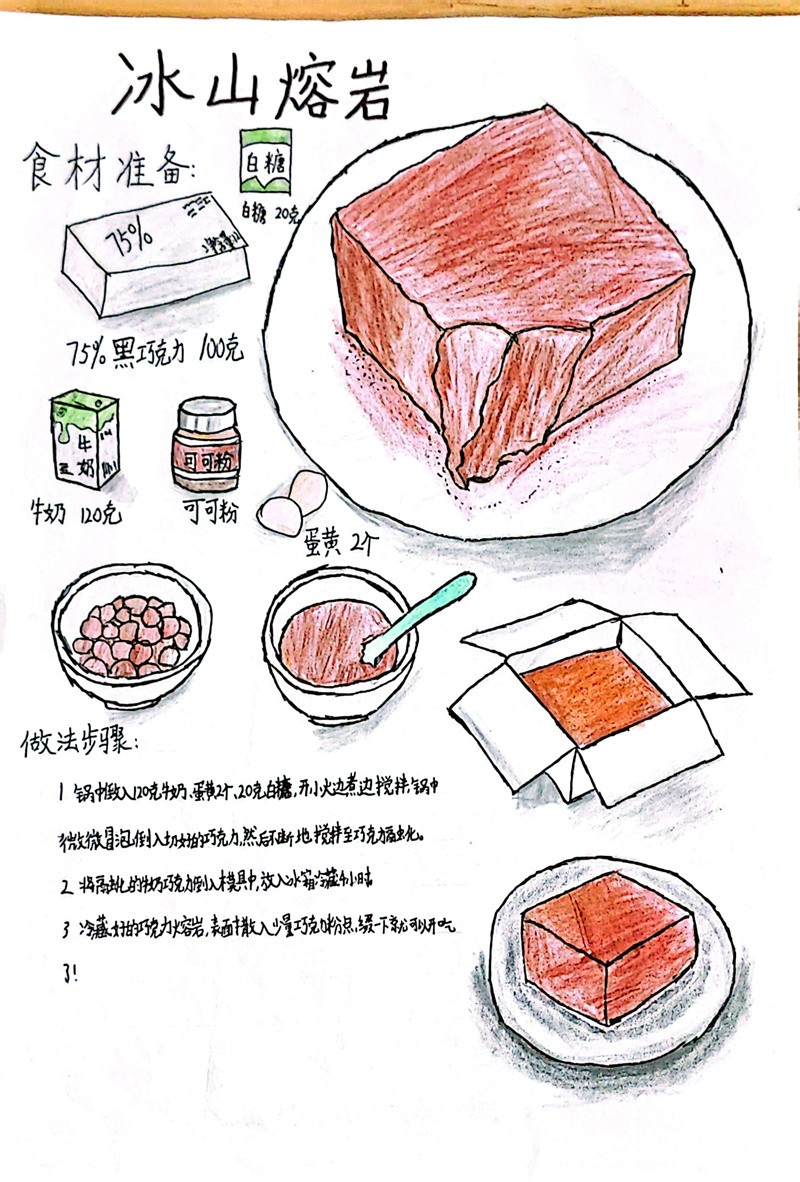 冰山熔岩
食材准备:
白糖
白糖 20克
75%
75% 黑巧克力 100克
牛奶
可可粉
牛奶 120克
可可粉
蛋黄 2个
做法步骤:
1 锅中倒入120克牛奶、蛋黄2个、20克白糖,开小火边煮边搅拌,锅中
微微冒泡,倒入切好的巧克力,然后不断地搅拌至巧克力融化。
2 将融化的牛奶巧克力倒入模具中,放入冰箱冷藏4小时
3 冷藏好的巧克力熔岩,表面撒入少量巧克力粉点缀一下就可以开吃
了!